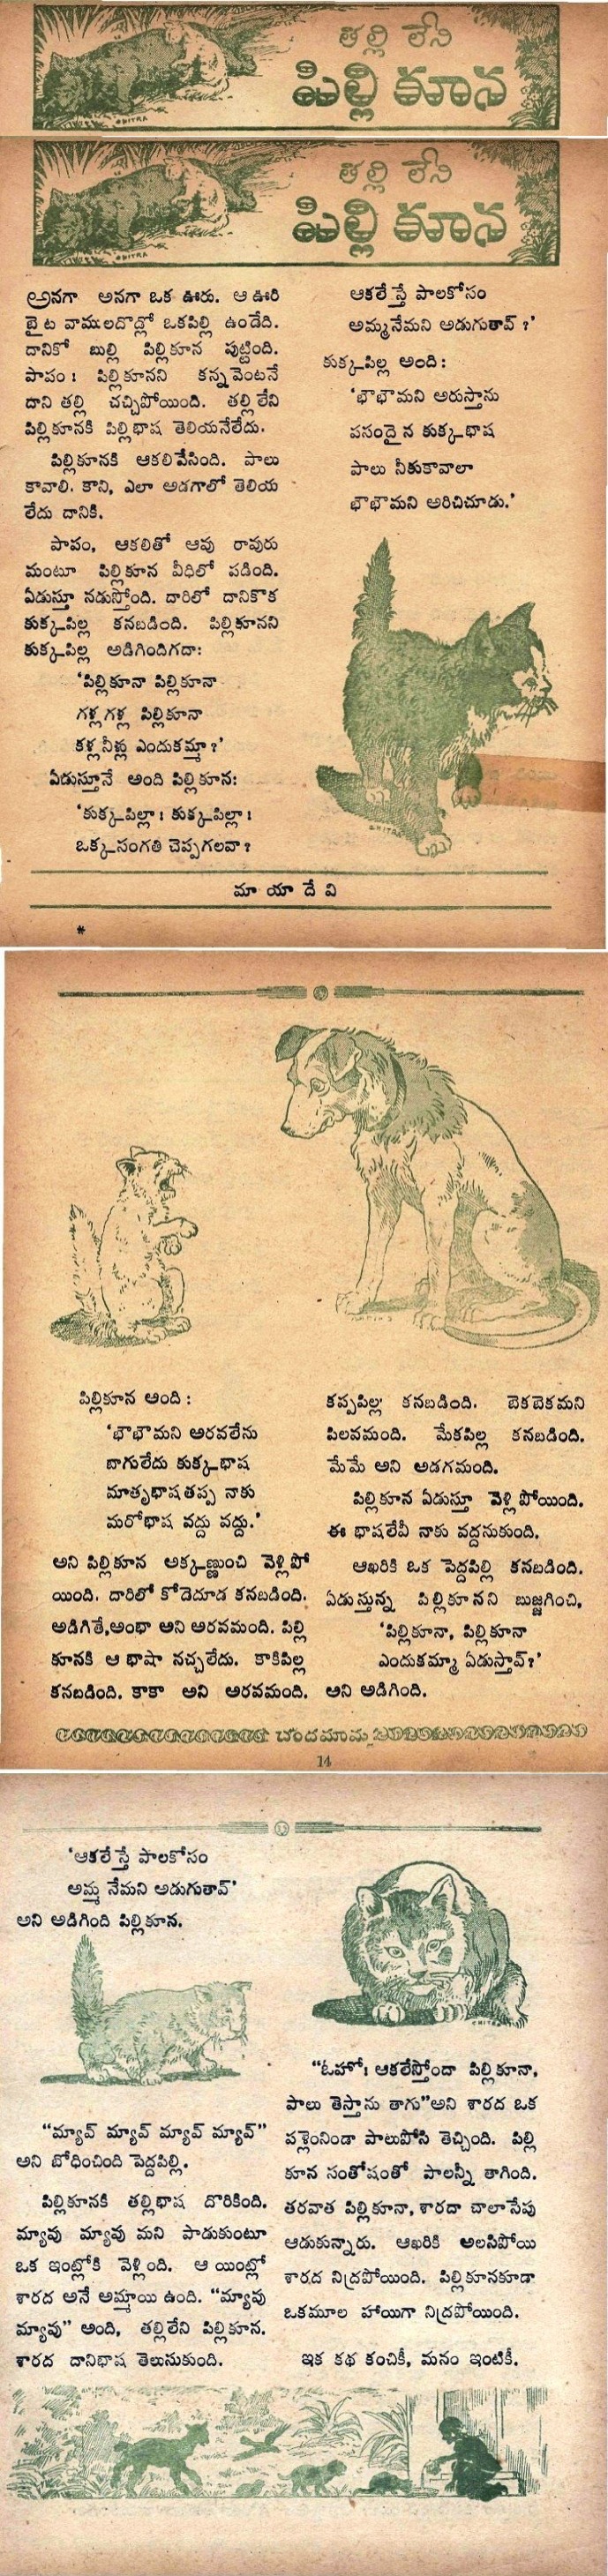 తల్లి లేని
పిల్లి కూన
CHITRA
తల్లి లేని
పిల్లి కూన
CHITRA
అనగా అనగా ఒక ఊరు. ఆ ఊరి
బైట వాములదొడ్లో ఒకపిల్లి ఉండేది.
దానికో బుల్లి పిల్లికూన పుట్టింది.
పాపం! పిల్లికూనని కన్నవెంటనే
దాని తల్లి చచ్చిపోయింది. తల్లిలేని
పిల్లికూనకి పిల్లిభాష తెలియనేలేదు.
పిల్లికూనకి ఆకలివేసింది. పాలు
కావాలి. కాని, ఎలా అడగాలో తెలియ
లేదు దానికి.
పాపం, ఆకలితో ఆవు రావురు
మంటూ పిల్లికూన వీధిలో పడింది.
ఏడుస్తూ నడుస్తోంది. దారిలో దానికొక
కుక్కపిల్ల కనబడింది. పిల్లికూనని
కుక్కపిల్ల అడిగిందిగదా:
‘పిల్లికూనా పిల్లికూనా
గళ్లగళ్ల పిల్లికూనా
కళ్లనీళ్లు ఎందుకమ్మా?’
ఏడుస్తూనే అంది పిల్లికూన:
‘కుక్కపిల్లా! కుక్కపిల్లా!
ఒక్కసంగతి చెప్పగలవా?
ఆకలేస్తే పాలకోసం
అమ్మనేమని అడుగుతావ్?’
కుక్కపిల్ల అంది:
‘భౌభౌమని అరుస్తాను
పసందైన కుక్కభాష
పాలు నీకుకావాలా
భౌభౌమని అరిచిచూడు.’
CHITRA
మాయాదేవి
*
పిల్లికూన అంది:
‘భౌభౌమని అరవలేను
బాగులేదు కుక్కభాష
మాతృభాషతప్ప నాకు
మరోభాష వద్దు వద్దు.’
అని పిల్లికూన అక్కణ్ణుంచి వెళ్లిపో
యింది. దారిలో కోడెదూడ కనబడింది.
అడిగితే,అంభా అని అరవమంది. పిల్లి
కూనకి ఆ భాషా నచ్చలేదు. కాకిపిల్ల
కనబడింది. కాకా అని అరవమంది.
కప్పపిల్ల కనబడింది. బెకబెకమని
పిలవమంది. మేకపిల్ల కనబడింది.
మేమే అని అడగమంది.
పిల్లికూన ఏడుస్తూ వెళ్లిపోయింది.
ఈ భాషలేవీ నాకు వద్దనుకుంది.
ఆఖరికి ఒక పెద్దపిల్లి కనబడింది.
ఏడుస్తున్న పిల్లికూనని బుజ్జగించి,
‘పిల్లికూనా, పిల్లికూనా
ఎందుకమ్మా ఏడుస్తావ్?’
అని అడిగింది.
చందమామ
14
‘ఆకలేస్తే పాలకోసం
అమ్మ నేమని అడుగుతావ్’
అని అడిగింది పిల్లికూన.
“మ్యావ్ మ్యావ్ మ్యావ్ మ్యావ్”
అని బోధించింది పెద్దపిల్లి.
పిల్లికూనకి తల్లిభాష దొరికింది.
మ్యావు మ్యావు మని పాడుకుంటూ
ఒక ఇంట్లోకి వెళ్లింది. ఆ యింట్లో
శారద అనే అమ్మాయి ఉంది. “మ్యావు
మ్యావు” అంది, తల్లిలేని పిల్లికూన.
శారద దానిభాష తెలుసుకుంది.
CHITRA
“ఓహో! ఆకలేస్తోందా పిల్లికూనా,
పాలు తెస్తాను తాగు”అని శారద ఒక
పళ్లెంనిండా పాలుపోసి తెచ్చింది. పిల్లి
కూన సంతోషంతో పాలన్నీ తాగింది.
తరవాత పిల్లికూనా, శారదా చాలాసేపు
ఆడుకున్నారు. ఆఖరికి అలసిపోయి
శారద నిద్రపోయింది. పిల్లికూనకూడా
ఒకమూల హాయిగా నిద్రపోయింది.
ఇక కథ కంచికీ, మనం ఇంటికీ.